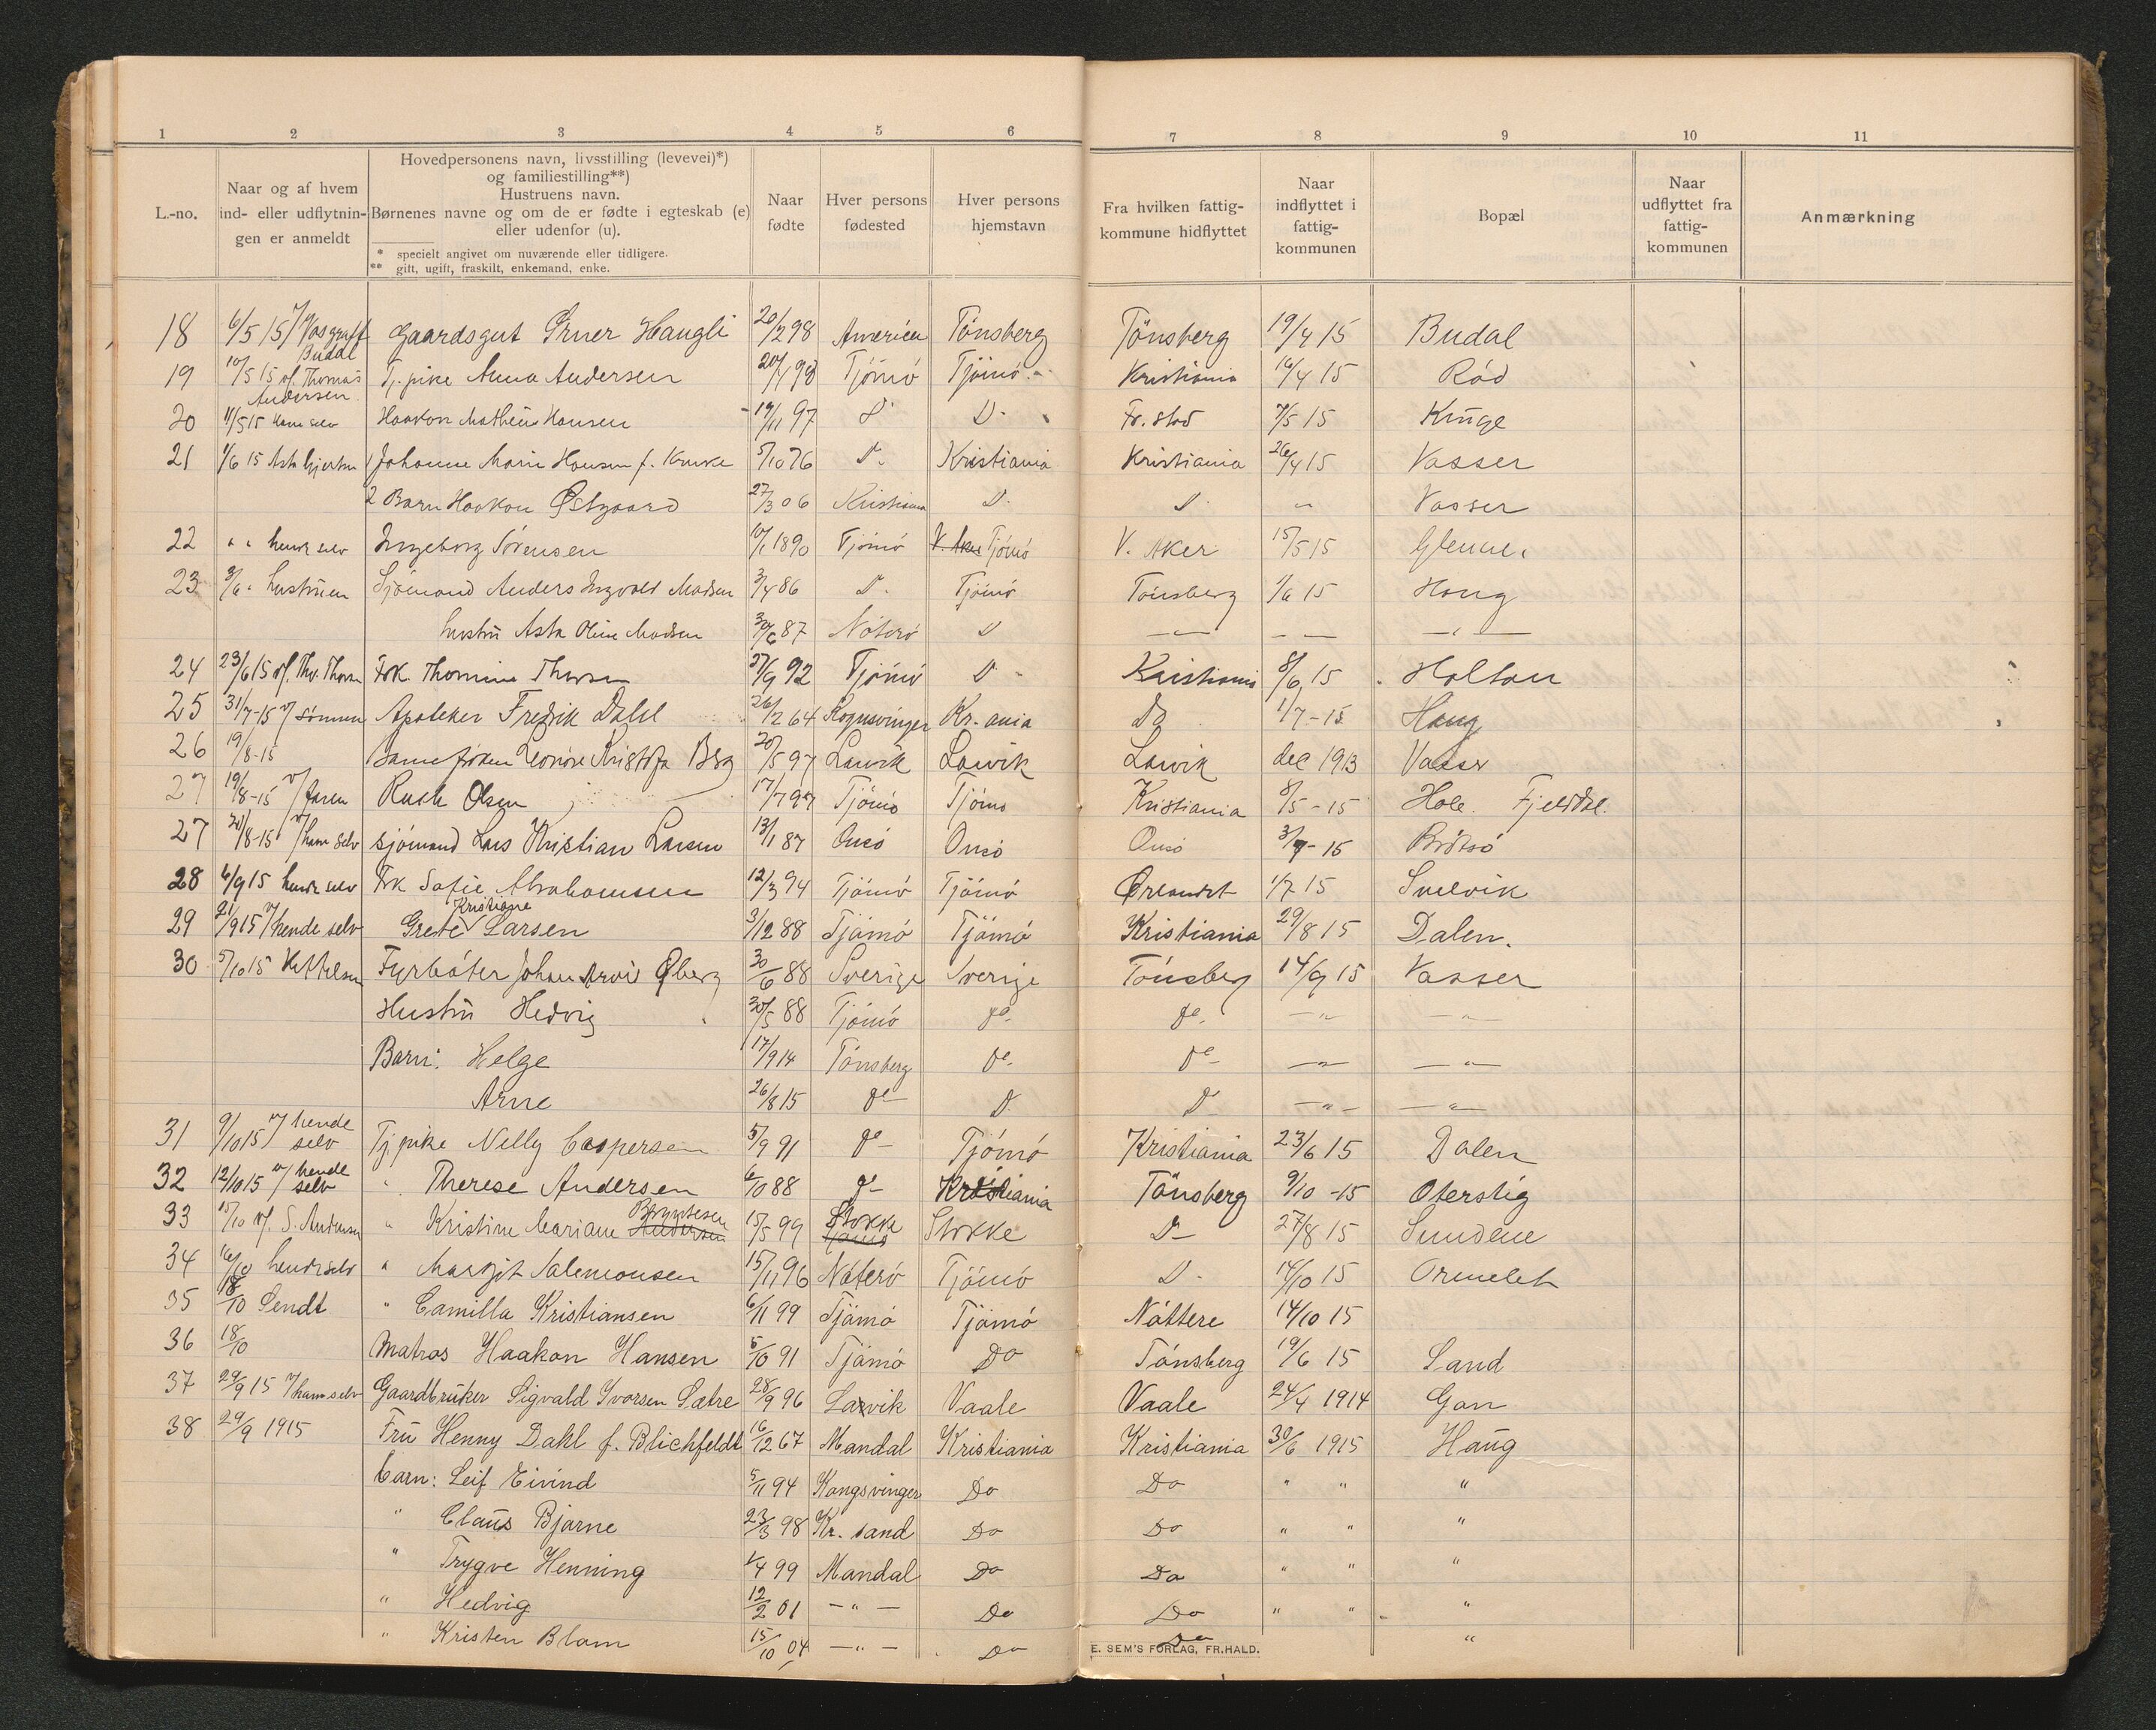 1 2 3 4 5 6 7 8 9 10 11
L.-no.
Naar og af hvem
ind- eller udflytnin-
gen er anmeldt
Hovedpersonens navn, livsstilling (levevei)*)
og familiestilling**)
Hustruens navn.
Børnenes navne og om de er fødte i egteskab (e)
eller udenfor (u).
* specielt angivet om nuværende eller tidligere.
** gift, ugift, fraskilt, enkemand, enke.
Naar
fødte
Hver persons
fødested
Hver persons
hjemstavn
Fra hvilken fattig-
kommune hidflyttet
Naar
indflyttet i
fattig-
kommunen
Bopæl
Naar
udflyttet fra
fattig-
kommunen
Anmærkning
18 6/5 15 Budal Gaardsgut Haugli 20/2 98 America Tönsberg Tönsberg 19/4 15 Budal
19 10/5 15 v/ Thomas Andersen Tj. pike Anna Andersen 20/1 98 Tjömö Tjömö Kristiania 16/4 15 Röd
20 11/5 15 ham selv Haakon Mathias Hansen 19/11 97 D D Fr. stad 7/5 15 Kruge
21 1/6 15 1 Johanne Marie Hansen f. 5/10 76 D. Kristiania Kristiania 26/4 15 Vasser
2 Barn Haakon Østgaard 27/3 06 Kristiania D. D. " Vasser
22 " " hende selv Ingeborg Sörensen 10/1 1890 Tjömö V. Aker Tjömö V. Aker 15/5 15 Glenne.
23 3/6 " hustruen Sjömand Anders Ingvald Madsen 3/4 86 D. Tjömö Tönsberg 1/6 15 Haug
hustru Asta Oline Madsen 30/6 87 Nöterö D — " — — — — " —
24 23/6 15 v/ Thv. Thorsen Frk. Thomine Thorsen 27/9 92 Tjömö D Kristiania 8/6 15 Holtan
25 31/7-15 v/ sönnen Apoteker Fredrik Dahl 26/2 64 Kognsvinger Kr-ania Do 1/7-15 Haug
26 19/8-15 Kristofa Berg 20/5 97 Larvik Larvik Larvik dec 1913 Vasser
27 19/8-15 v/ faren Olsen 17/7 97 Tjömö Tjömö Kristiania 8/5-15 Hole. Fjeldal.
27 20/8-15 v/ ham selv sjömand Lars Kristian Larsen 13/1 87 Onsö Onsö Onsö 3/7-15 Brötsö
28 6/9 15 hende selv Frk Sofie Abrahamsen 12/3 94 Tjömö Tjömö Ørlandet 1/7 15 Svelvik
29 21/9 15 v/ hende selv Grete Kristiane Larsen 3/12 88 Tjömö Tjömö Kristiania 29/8 15 Dalen.
30 5/10 15 Kettelsen Fyrböter Johan Arvid Øberg 30/6 88 Sverige Sverige Tönsberg 14/9 15 Vasser
Hustru Hedvig 30/5 88 Tjömö do do — " — — " —
Barn: Helge 17/9 14 Tönsberg do do — " — — " —
Arne 26/8 15 do D D — " — — " —
31 9/10 15 v/ hende selv Tj. pike Nelly Caspersen 5/9 91 do Tjömö Kristiania 23/6 15 Dalen
32 12/10 15 v/ hende selv " Therese Andersen 6/10 88 do Kristiania Tönsberg 9/10-15 Oterstig
33 15/10 v/ S. Andersen " Kristine Mariane Andersen Bryntesen 15/5 99 Tjömö Stokke Stokke D 27/8 15 Sundene
34 16/10 hende selv " Margit Salemonsen 15/11 96 Nöterö Tjömö D. 14/10 15 Ormelet
35 18/10 Sendt " Camilla Kristiansen 6/11 99 Tjömö Tjömö Nöttere 14/10 15
36 18/10 Matros Haakon Hansen 5/10 91 Tjömö Do Tönsberg 19/6 15 Sand
37 29/9 15 v/ ham selv Gaardbruker Sigvald Ivorsen Sætre 28/9 96 Larvik Vaale Vaale 24/4 1914 Gon
38 29/9 1915 Fru Henny Dahl f. Blichfeldt 16/12 67 Mandal Kristiania Kristiania 30/6 1915 Haug
barn: Leif Eivind 5/11 94 Kongsvinger Do Do " " "
" Claus Bjarne 23/3 98 Kr. sand Do Do " " "
" Trygve Henning 1/4 99 Mandal Do Do " " "
" Hedvig 12/2 01 — " — Do Do " " "
" Kristen Blom 15/10 04 — " — Do Do "
E. SEM'S FORLAG, FR.HALD.